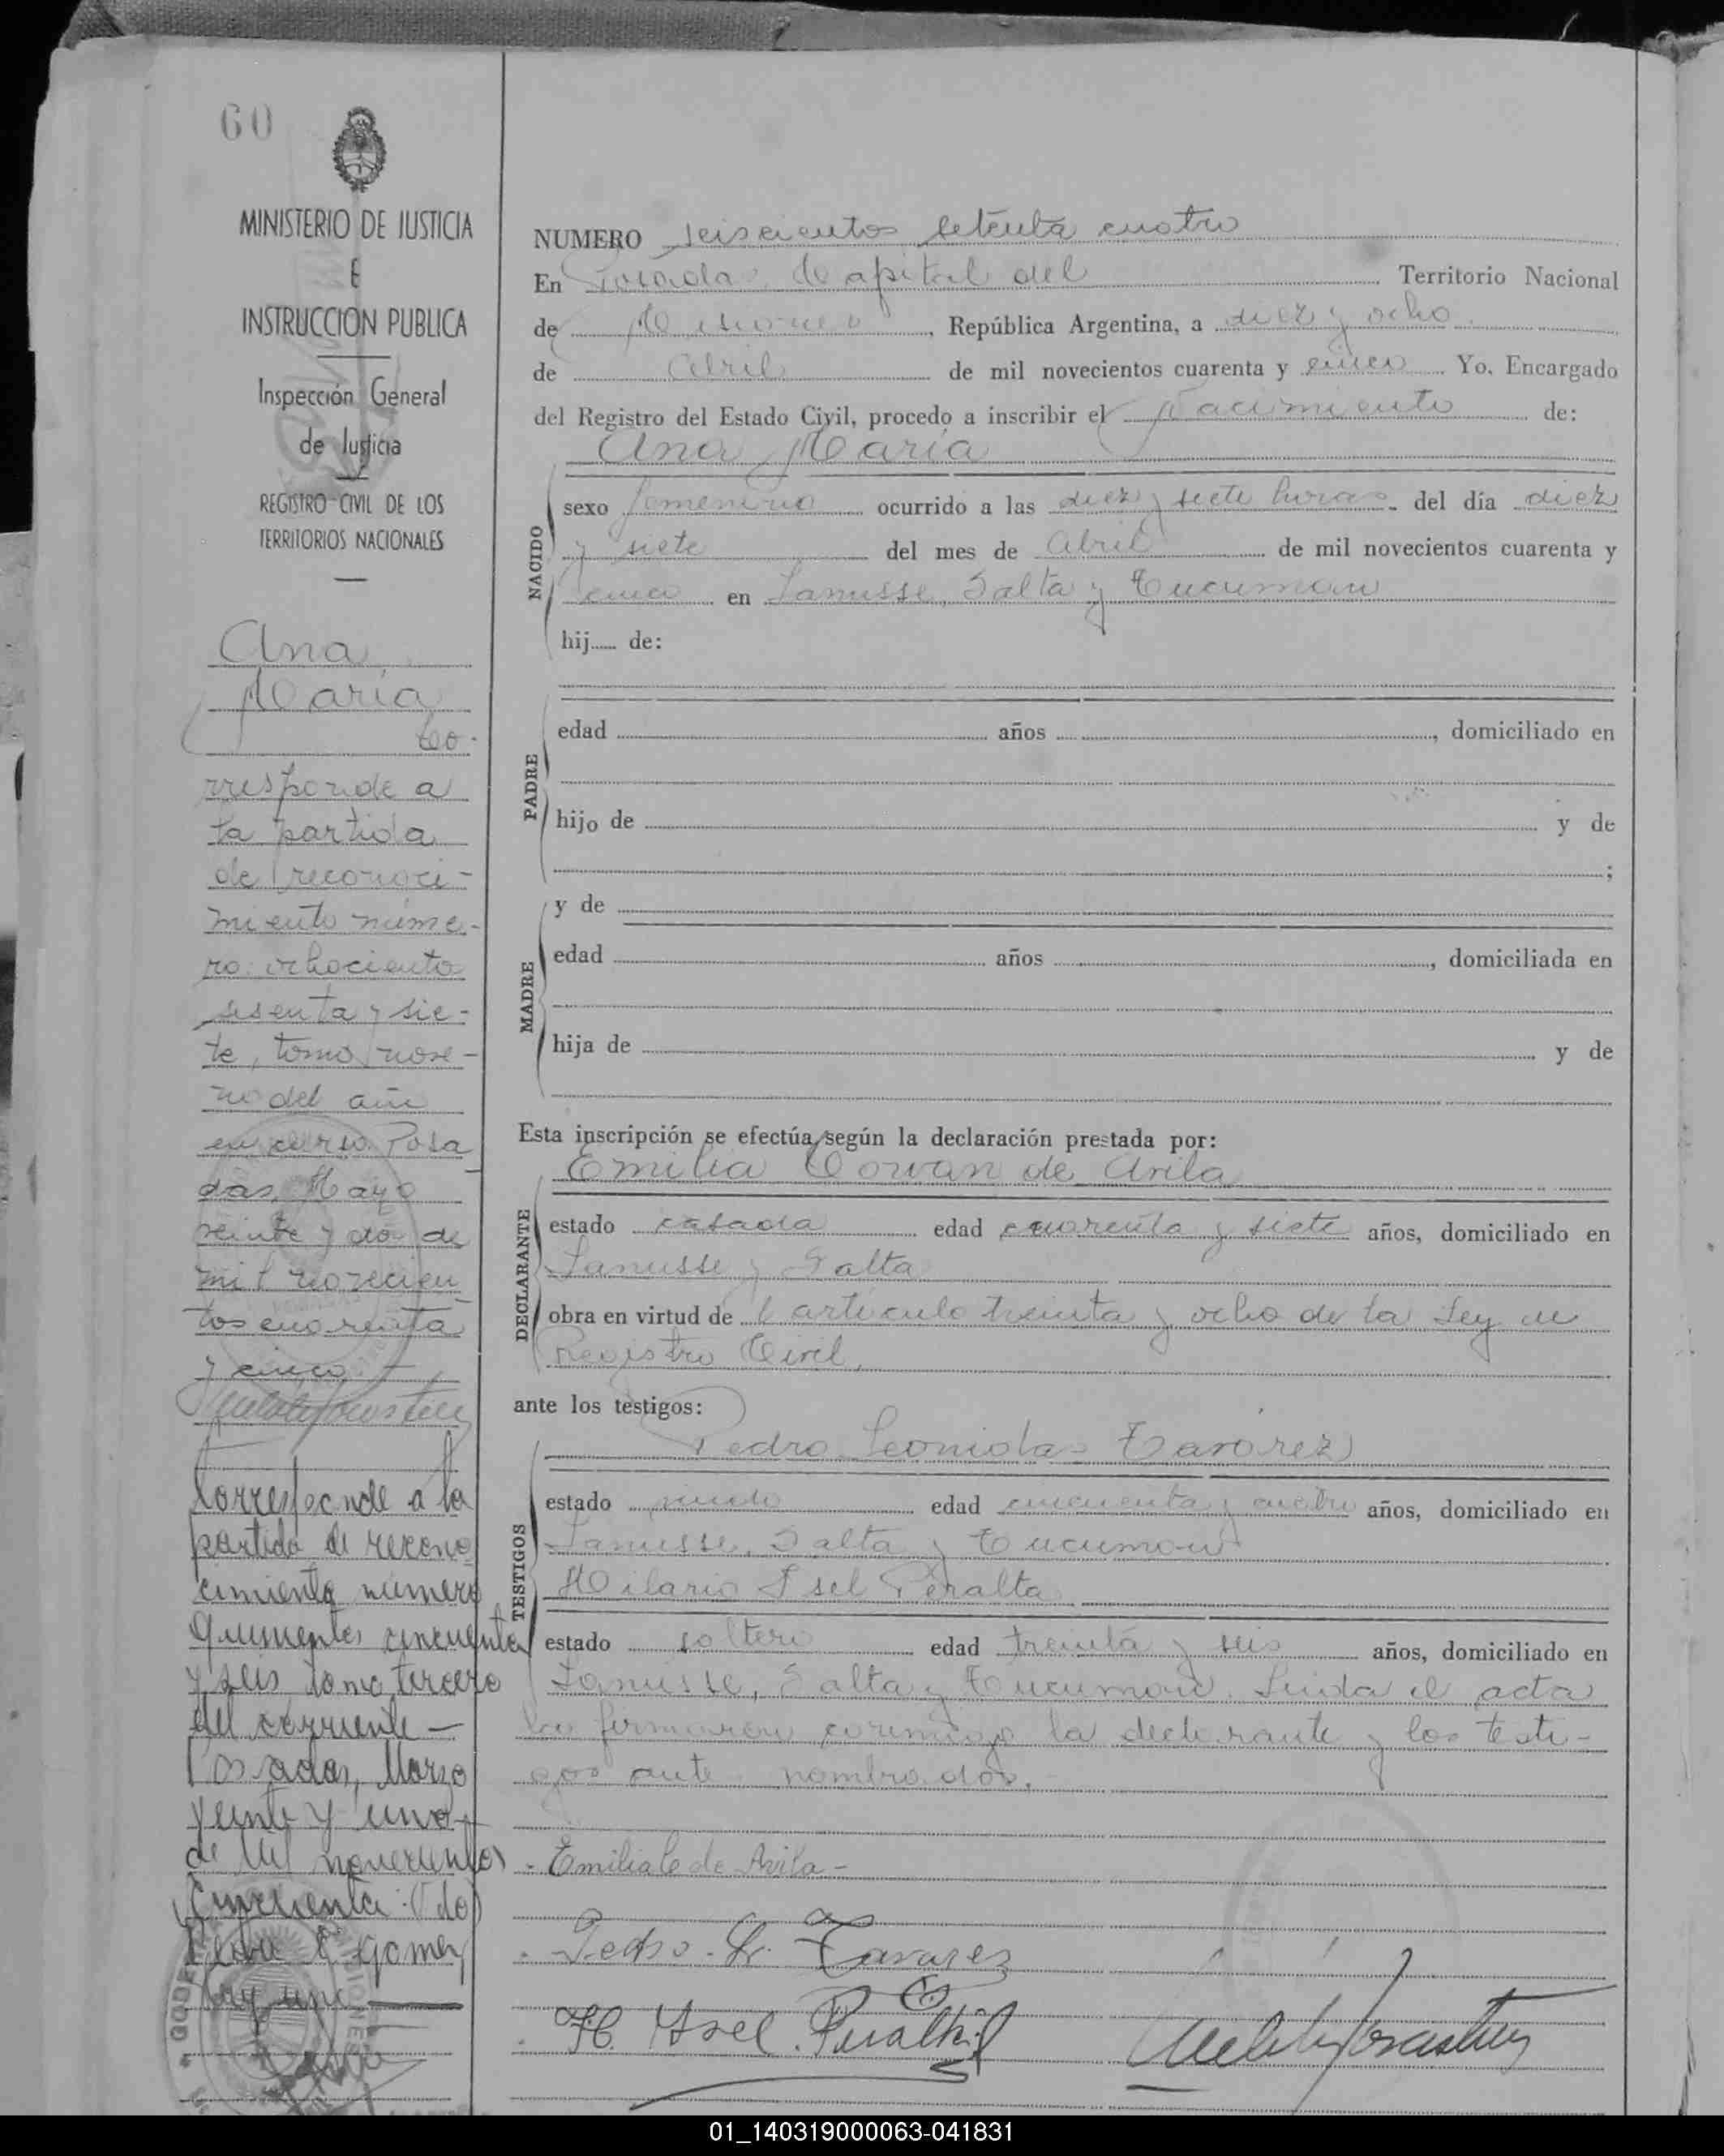 60
MINISTERIO DE JUSTICIA
E
INSTRUCCION PUBLICA
Inspección General
de Justicia
REGISTRO CIVIL DE LOS
TERRITORIOS NACIONALES
Ana
Maria
Co-
rresponde a
la partida
de reconoci-
miento núme-
ro ochociento
sesenta y sie-
te, tomo nove-
no del año
en curso Posa
das, Mayo
veinte y dos de
mil novecien
tos cuarenta
y cinco.
Corresponde a la
partida de recono
cimiento número
quinientos cincuenta
y seis tomo tercero
del corriente —
Posadas, Marzo
veinte y uno
de Mil novecientos
Cincuenta:
Gomez
NUMERO seiscientos setenta cuatro
En Posadas Capital del Territorio Nacional
de Misiones, República Argentina, a diez y ocho
de Abril de mil novecientos cuarenta y cinco Yo, Encargado
del Registro del Estado Civil, procedo a inscribir el Nacimiento de:
Ana Maria
NACIDO
sexo femenino ocurrido a las diez y siete horas del día diez
y siete del mes de Abril de mil novecientos cuarenta y
cinco en Lanusse, Salta y Tucuman
hij de:
PADRE
edad años , domiciliado en
hijo de y de
;
MADRE
y de
edad años , domiciliada en
hija de y de
Esta inscripción se efectúa según la declaración prestada por:
Emilia Corvan de Avila
DECLARANTE
estado casada edad cuarenta y siete años, domiciliado en
Lanusse y Salta
obra en virtud de l articulo treinta y ocho de la Ley de
Registro Civil,
ante los testigos:
TESTIGOS
Pedro Leonidas Tavarez
estado viudo edad cincuenta y cuatro años, domiciliado en
Lanusse, Salta y Tucuman
Hilario Isel Peralta
estado soltero edad treinta y seis años, domiciliado en
Lanusse, Salta y Tucuman. Leida el acta
la firmaron conmigo la declarante y los testi-
gos ante nombrados.
- Emilia C de Avila -
Pedro. L. Tavarez
H. Isel. Peralta
01_140319000063-041831